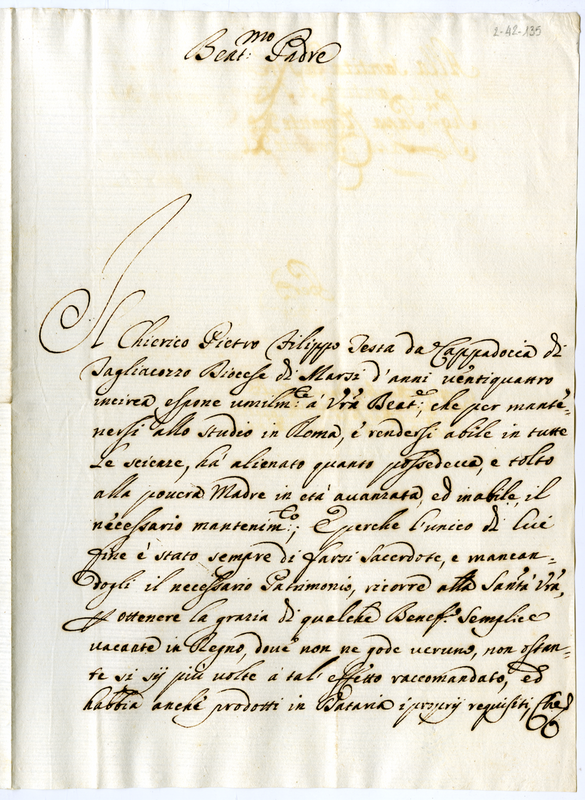 2-42-135
Beat:mo Padre
Il Chierico Pietro Filippo Testa da Cappadocia di
Tagliacozzo Diocese di Marsi d'anni uentiquattro
incirca espone umilm:te a' Vr̃a Beat:e, che per mante-
nersi allo studio in Roma, è rendersi abile in tutte
le scienze, hà alienato quanto possedeua, e tolto
alla pouera Madre in età auanzata, ed inabile, il
necessario mantenim:to; E perche l'unico di lui
fine è stato sempre di farsi Sacerdote, e mancan-
dogli il necessario Patrimonio, ricorre alla Santà Vr̃a,
ottenere la grazia di qualche Benef:o Semplice
uacante in Regno, doue non ne gode ueruno, non ostan-
te si sij più uolte à tal' effetto raccomandato, ed
habbia anche prodotti in Dataria i proprij requisiti, Che